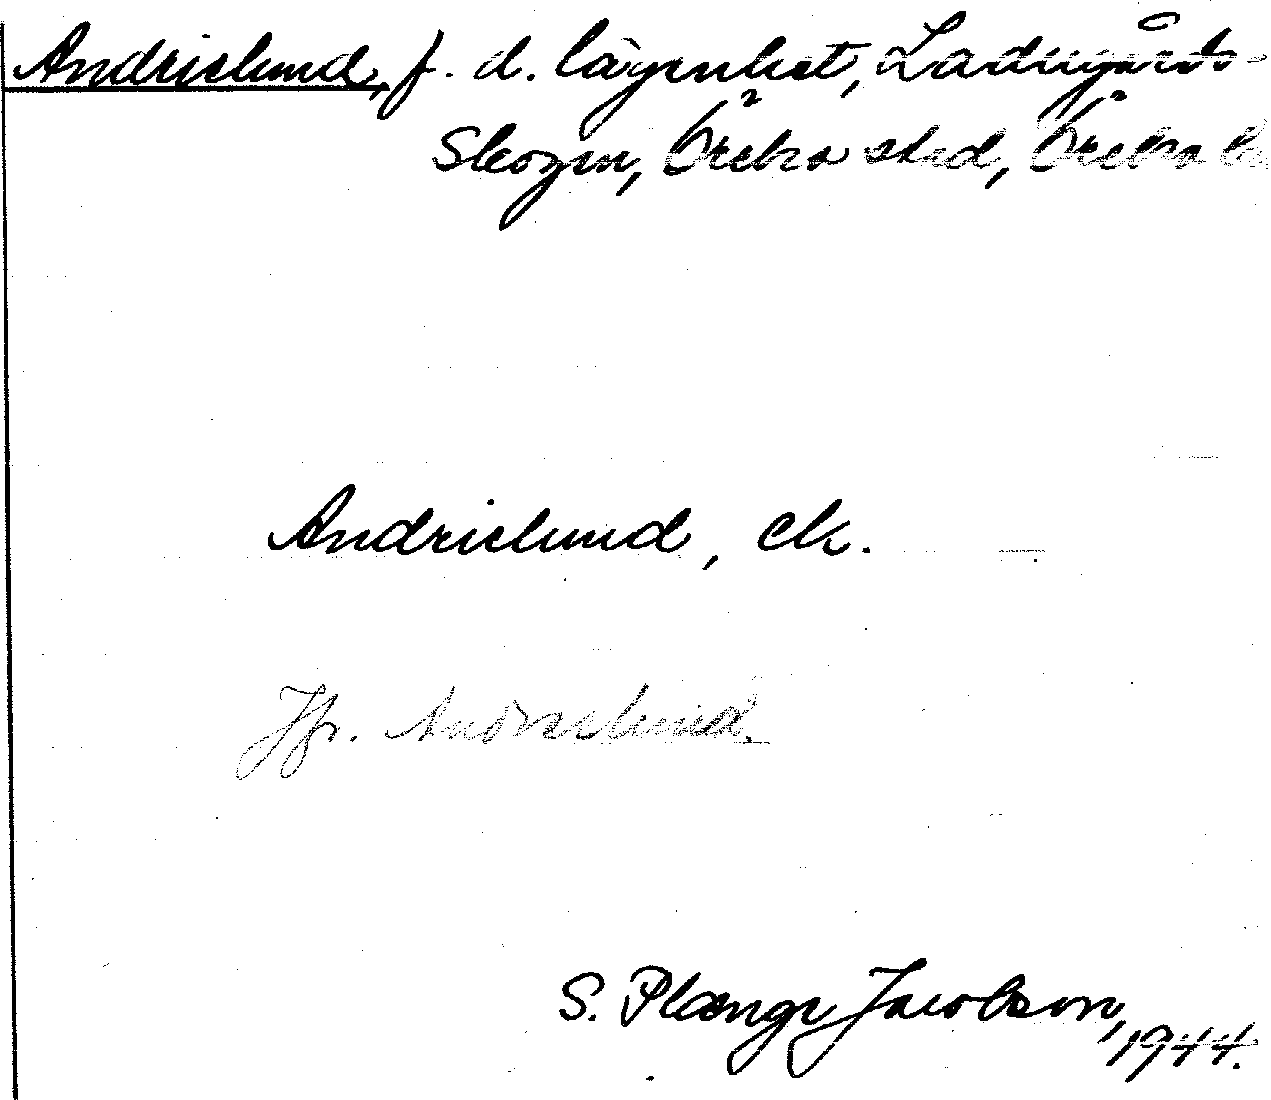 Andrielund, f. d. lägenhet, Ladugårds-
skogen, Örebro stad, Örebro l
Andrielund, ek.
Jfr. Andrelund.
S. Plænge Jacobson,
1944.